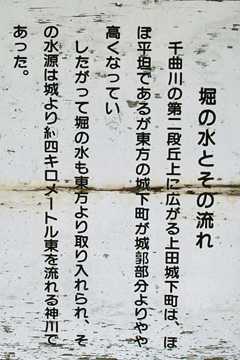 堀の水とその流れ
千曲川の第二段丘上に広がる上田城下町は、ほ
ぼ平坦であるが東方の城下町が城郭部分よりやや
高くなってい
したがって堀の水も東方より取り入れられ、そ
の水源は城より約四キロメートル東を流れる神川で
あった。